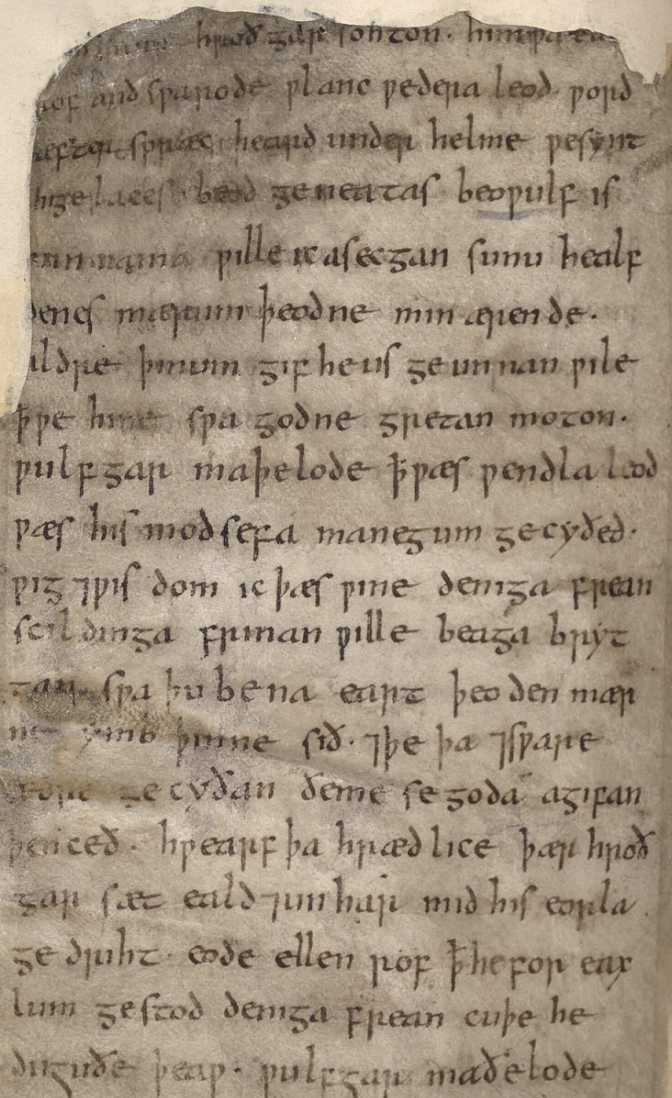 hroð gar sohton. him þa
rof and sƿarode ƿlanc ƿedera leod. ƿord
æfter spræc heard under helme ƿe synt
hige laces beod geneatas beoƿulf is
min nama ƿille ic asecgan sunu healf
denes mærum þeodne min ærende.
aldre þinum gif he us geunnan ƿile
ꝥ ƿe hine sƿa godne gretan moton.
ƿulf gar maþelode ꝥ ƿæs ƿendla leod
ƿæs his mod sefa manegum gecyðed.
ƿig ⁊ ƿis dom ic þæs ƿine deniga frean
scildinga frinan ƿille beaga bryt
tan sƿa þu bena eart þeoden mær
ne ymb þinne sið. ⁊ þe þa ⁊sƿare
ædre gecyðan ðe me se goda agifan
þenceð. hƿearf þa hrædlice þær hroð
gar sæt eald ⁊ unhar mid his eorla
gedriht. eode ellen rof ꝥ he for eax
lum gestod deniga frean cuþe he
duguðe þeaƿ. ƿulfgar maðelode